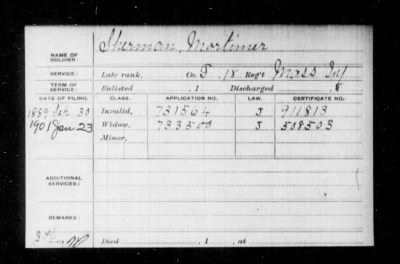 Sherman, Mortimer
NAME OF SOLDIER:
SERVICE: Late rank, Co. F, 18 Reg't Mass Inf
TERM OF SERVICE: Enlisted , 1 Discharged , 1
DATE OF FILING. CLASS. APPLICATION NO. LAW. CERTIFICATE NO.
30 Invalid, 731564 J 911813
1901 Jan 23 Widow, 733500 J 508503
Minor,
ADDITIONAL SERVICES:
REMARKS:
Died , 1 , at